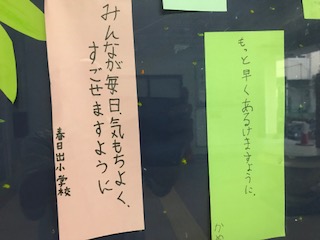 みんなが毎日、気もちよく、
すごせますように
春日出小学校
もっと早くあるけますように、
かめ